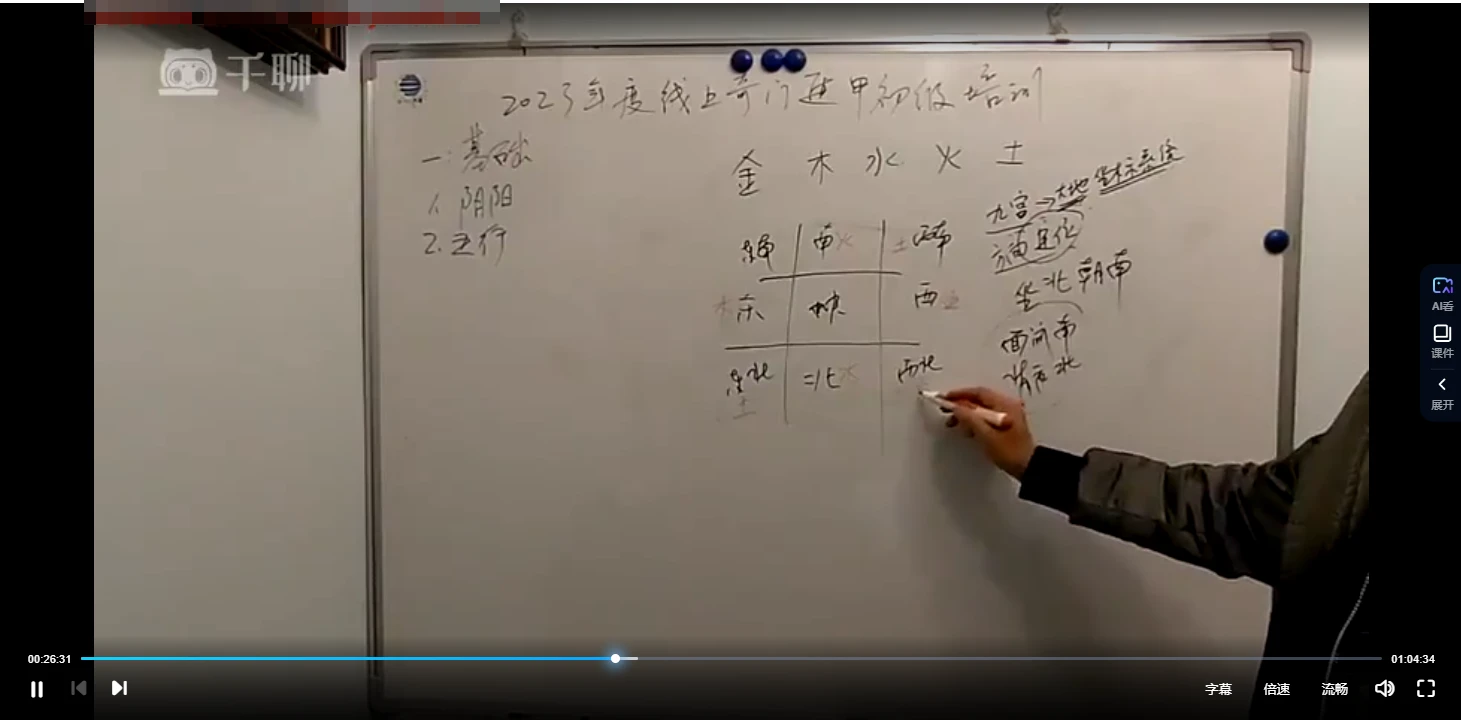 千聊
2023年度线上奇门遁甲初级培训
一:基础
1.阴阳
2.五行
金 木 水 火 土
九宫→大地 坐标
方面 定位
坐北朝南
面向南
背

东南 南火 土西南
木东 中央 西
东北 北水 西北
土
AI看
课件
展开
00:26:31
01:04:34
字幕 倍速 流畅